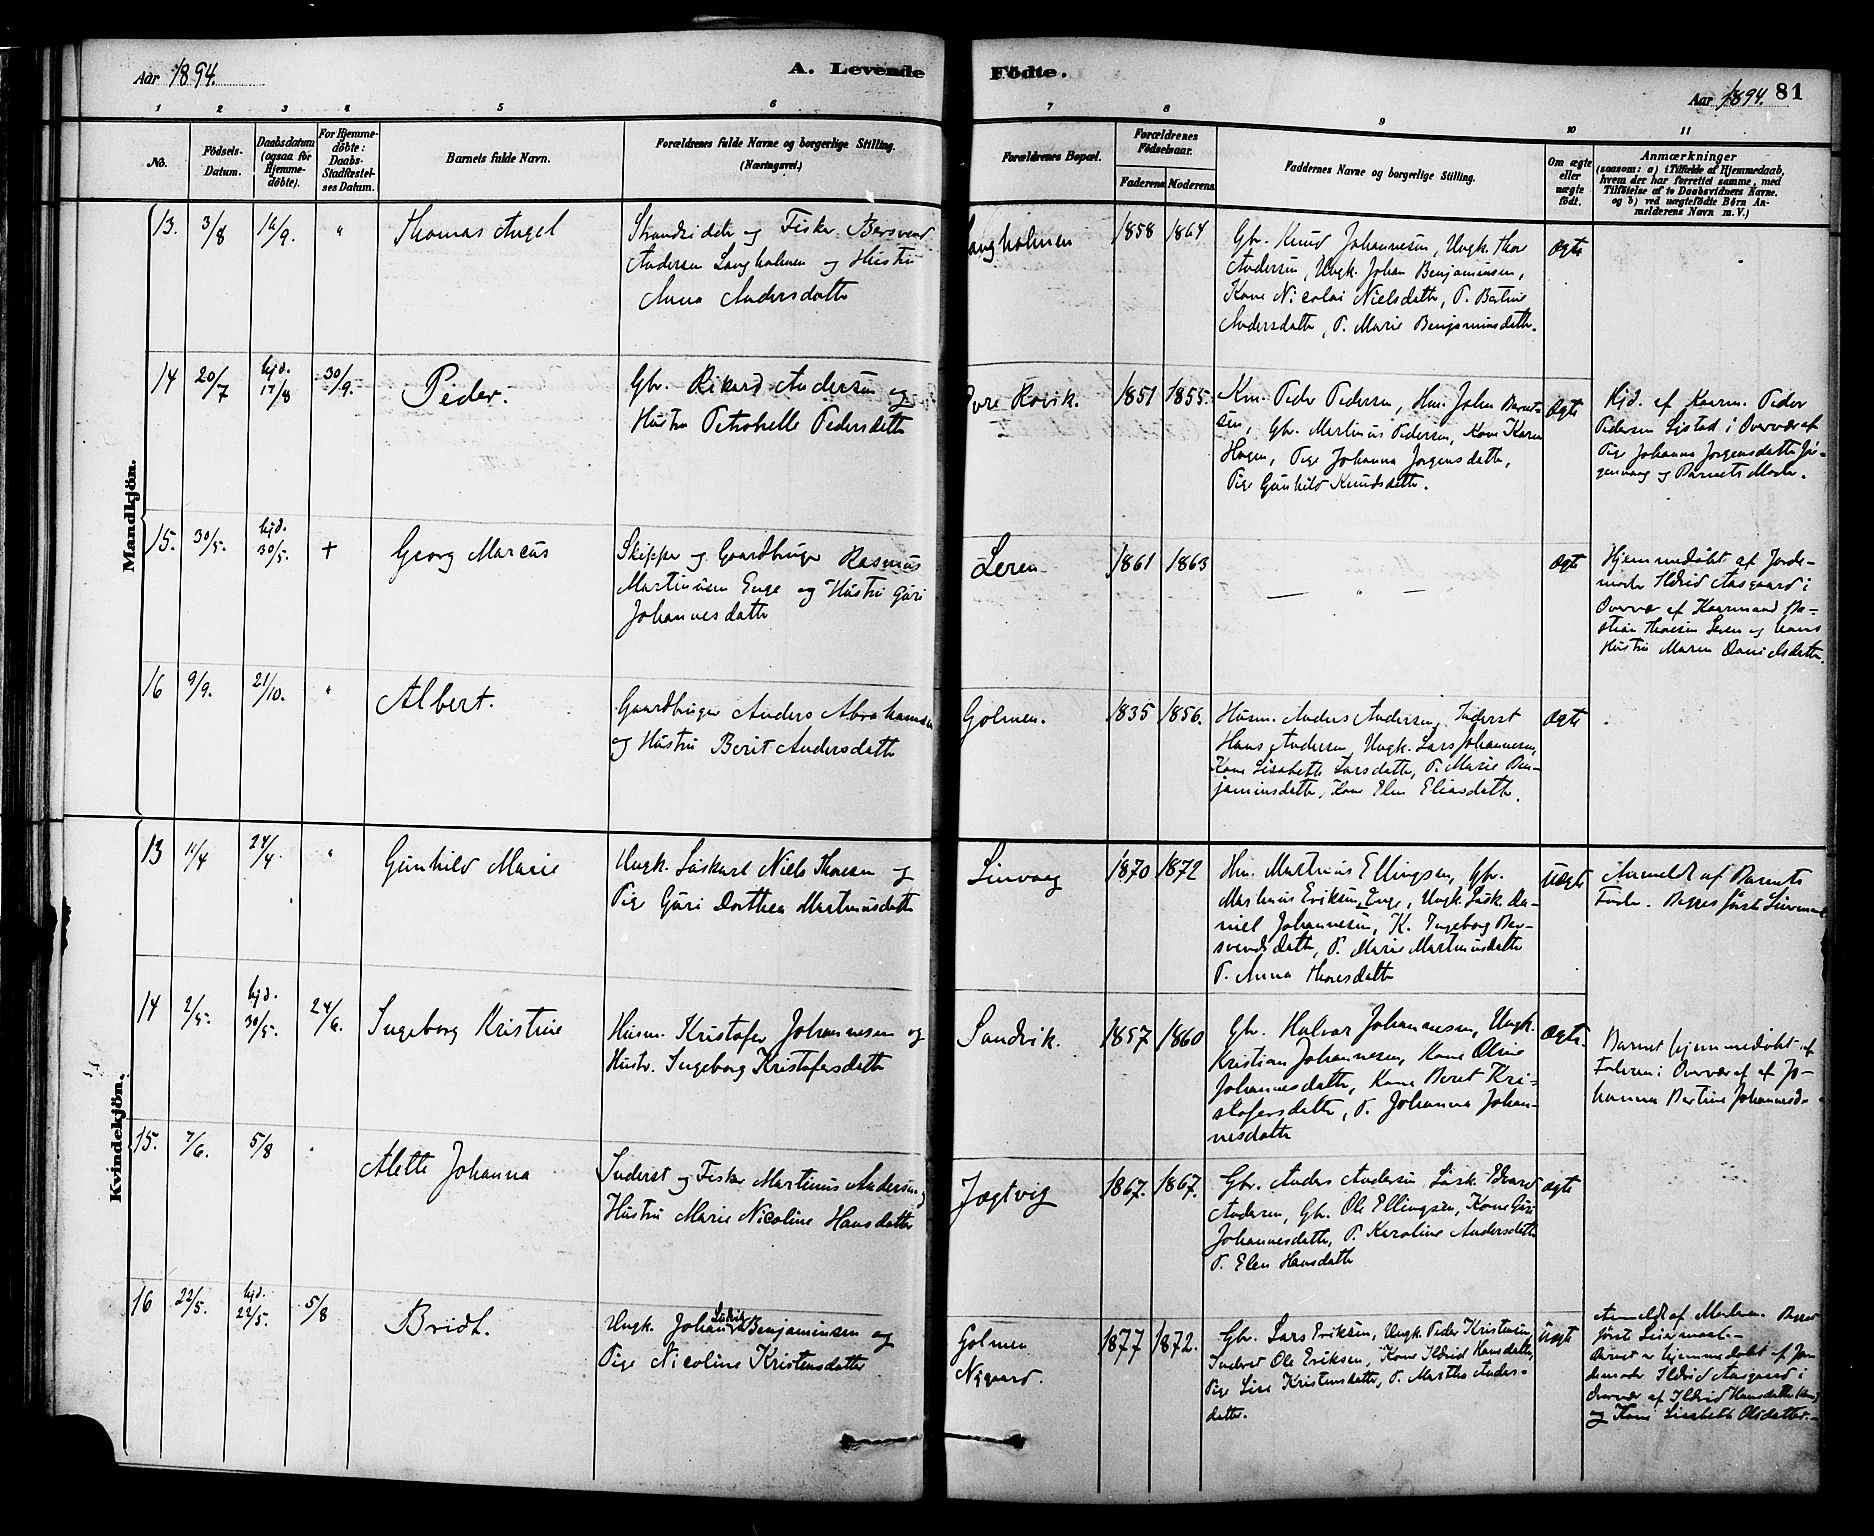 Aar 1894.
A. Levende Födte.
Aar 1894. 81
1 2 3 4 5 6 7 8 9 10 11
No.
Födsels-
Datum.
Daabsdatum
(ogsaa for
Hjemme-
döbte).
For Hjemme-
döbte:
Daabs-
Stadfæstel-
ses Datum.
Barnets fulde Navn.
Forældrenes fulde Navne og borgerlige Stilling.
(Næringsvei.)
Forældrenes Bopæl.
Forældrenes
Födselsaar.
Faderens Moderens
Faddernes Navne og borgerlige Stilling.
Om ægte
eller
uægte
födt.
Anmærkninger
(saasom: a) i Tilfælde af Hjemmedaab,
hvem der har forrettet samme, med
Tilföielse af to Daabsvidners Navne,
og b) ved uægtefödte Börn An-
melderens Navn m. V.)
Mandkjön.
13. 3/8 16/9. " Thomas Angel
Strandsidder og Fisker Bersvend
Andersen Langholmen og Hustru
Anna Andersdatte
Langholmen 1858 1864
Gbr. Knud Johannesen, Ungk. Thore
Andersen, Ungk. Johan Benjaminsen,
Kone Nicolai Nielsdatte, P. Batine
Andersdatte, P. Marie Benjaminsdatte.
Ægte
14 20/7 hjd. 17/8 30/9. Peder.
Gbr. Rikard Andersen og
Hustru Petronelle Pedersdatte
Øvre Rovik. 1851 1855.
Km. Peder Pedersen, Hm. Johan Bernt-
sen, Gbr. Martinus Pedersen, Kone Karen
Hagen, Pige Johanna Jørgensdatte,
Pige Gunhild Knudsdatte.
Ægte
Hjd. af Kaarm. Peder
Pedersen Sjstad i Overvær af
Pige Johanna Jørgensdatte Jør-
genvaag og Barnets Moder.
15. 30/5. hjd. 30/5. + Georg Marcus
Skipper og Gaardbruger Rasmus
Martinusen Enge og Hustru Guri
Johannesdatte
Leren 1861 1863
— " —
Ægte
Hjemmedøbt af Jorde-
moder Ildrid Aasgaard i
Overvær af Kaarmand Ba-
stian Thoresen Leren og hans
Hustru Maren Danielsdatte.
16 9/9. 21/10. " Albert.
Gaardbruger Anders Abrahamsen
og Hustru Berit Andersdatte
Golmen. 1835 1856.
Husm. Anders Andersen, Inderst
Hans Andersen, Ungk. Lars Johannesen,
Kone Lisabeth Larsdatte, P. Marie Ben-
jaminsdatte, Kone Elen Eliasdatte.
Ægte
Kvindekjön.
13 11/4 24/4. " Gunhild Marie
Ungk. Løskarl Niels Thoresen og
Pige Guri Dorthea Martinusdatte
Linvaag 1870 1872
Hm. Martinus Ellingsen, Gbr.
Martinus Eriksen Enge, Ungk. Løsk. Da-
niel Johannesen, K. Ingeborg Ber-
svendsdatte, P. Marie Martinusdatte
P. Anna Thoresdatte
Uægte
Anmeldt af Barnets
Fader. Begges første Leiermaal
14 2/5. hjd. 30/5. 24/6. Ingeborg Kristine
Husm. Kristofer Johannesen og
Hustr. Ingeborg Kristofersdatte
Sandvik. 1857 1860
Gbr. Halvar Johannesen, Ungk.
Kristian Johannesen, Kone Oline
Johannesdatte, Kone Beret Kri-
stofersdatte, P. Johanna Johan-
nesdatte
Ægte.
Barnet hjemmedøbt af
Faderen i Overvær af af Jo-
hanna Bertine Johannesd.
15. 7/6. 5/8 . Alette Johanna
Inderst og Fisker Martinus Andersen og
Hustru Marie Nicoline Hansdatte
Jægtvig 1867. 1867.
Gbr. Anders Andersen Løsk. Edvard
Andersen, Gbr. Ole Ellingsen, Kone Guri
Johannesdatte, P. Karoline Andersdatte
P. Elen Hansdatte
Ægte
16 22/5. hjd. 22/5. 5/8 Bridt.
Ungk. Johan Ludvik Benjaminsen og
Pige Nicoline Kristensdatte
Golmen
Nigaard. 1877 1872.
Gbr. Lars Eriksen, Ungk. Peder Kristensen,
Inderst Ole Eriksen, Kone Ildrid Hansdatte,
Pige Lise Kristensdatte, P. Martha Anders-
datte.
Uægte
Anmeldt af Moderen. Begges
første Leiermaal.—
Barnet er hjemmedøbt af Jor-
demoder Ildrid Aasgaard i
Overvær af Ildrid Hansdatte
og Kone Lisabeth Olsdatter.—